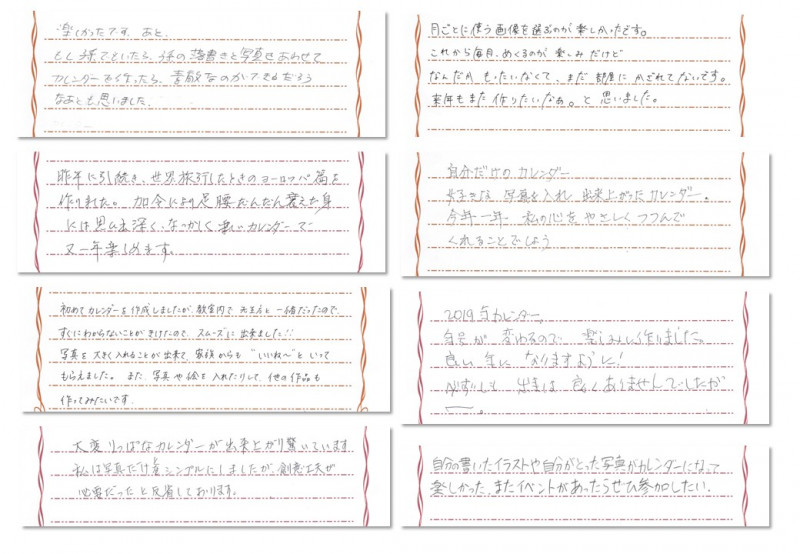 楽しかったです。あと、
もし孫でといたら、孫の落書きと写真をあわせて
カレンダーを作ったら、素敵なのができるだろう
なあとも思いました。
昨年に引続き、世界旅行したときのヨーロッパ篇を
作りました。加令により足腰だんだん衰えた身
には思ひ出深く、なつかしく楽しいカレンダーで
又一年楽しめます。
初めてカレンダーを作成しましたが、教室内で先生方と一緒だったので、
すぐにわからないことがきけたので、スムーズに出来ました!!
写真を大きく入れることが出来て、家族からも"いいね〜"といって
もらえました。また、写真や絵を入れたりして、他の作品も
作ってみたいです。
大変りっぱなカレンダーが出来上がり驚いています
私は写真だけをシンプルにしましたが、創意工夫が
必要だったと反省しております。
月ごとに使う画像を選ぶのが楽しかったです。
これから毎月、めくるのが楽しみだけど
なんだかもったいなくて、まだ部屋にかざれてないです。
来年もまた作りたいなぁ。と思いました。
自分だけのカレンダー
好きな写真を入れ出来上がったカレンダー。
今年一年私の心をやさしくつつんで
くれることでしょう
2019年カレンダー、
年号が変わるので楽しみに作りました。
良い年になりますように!
出来は良くありませんでしたが
ー。
自分の書いたイラストや自分がとった写真がカレンダーになって
楽しかった。またイベントがあったらぜひ参加したい。